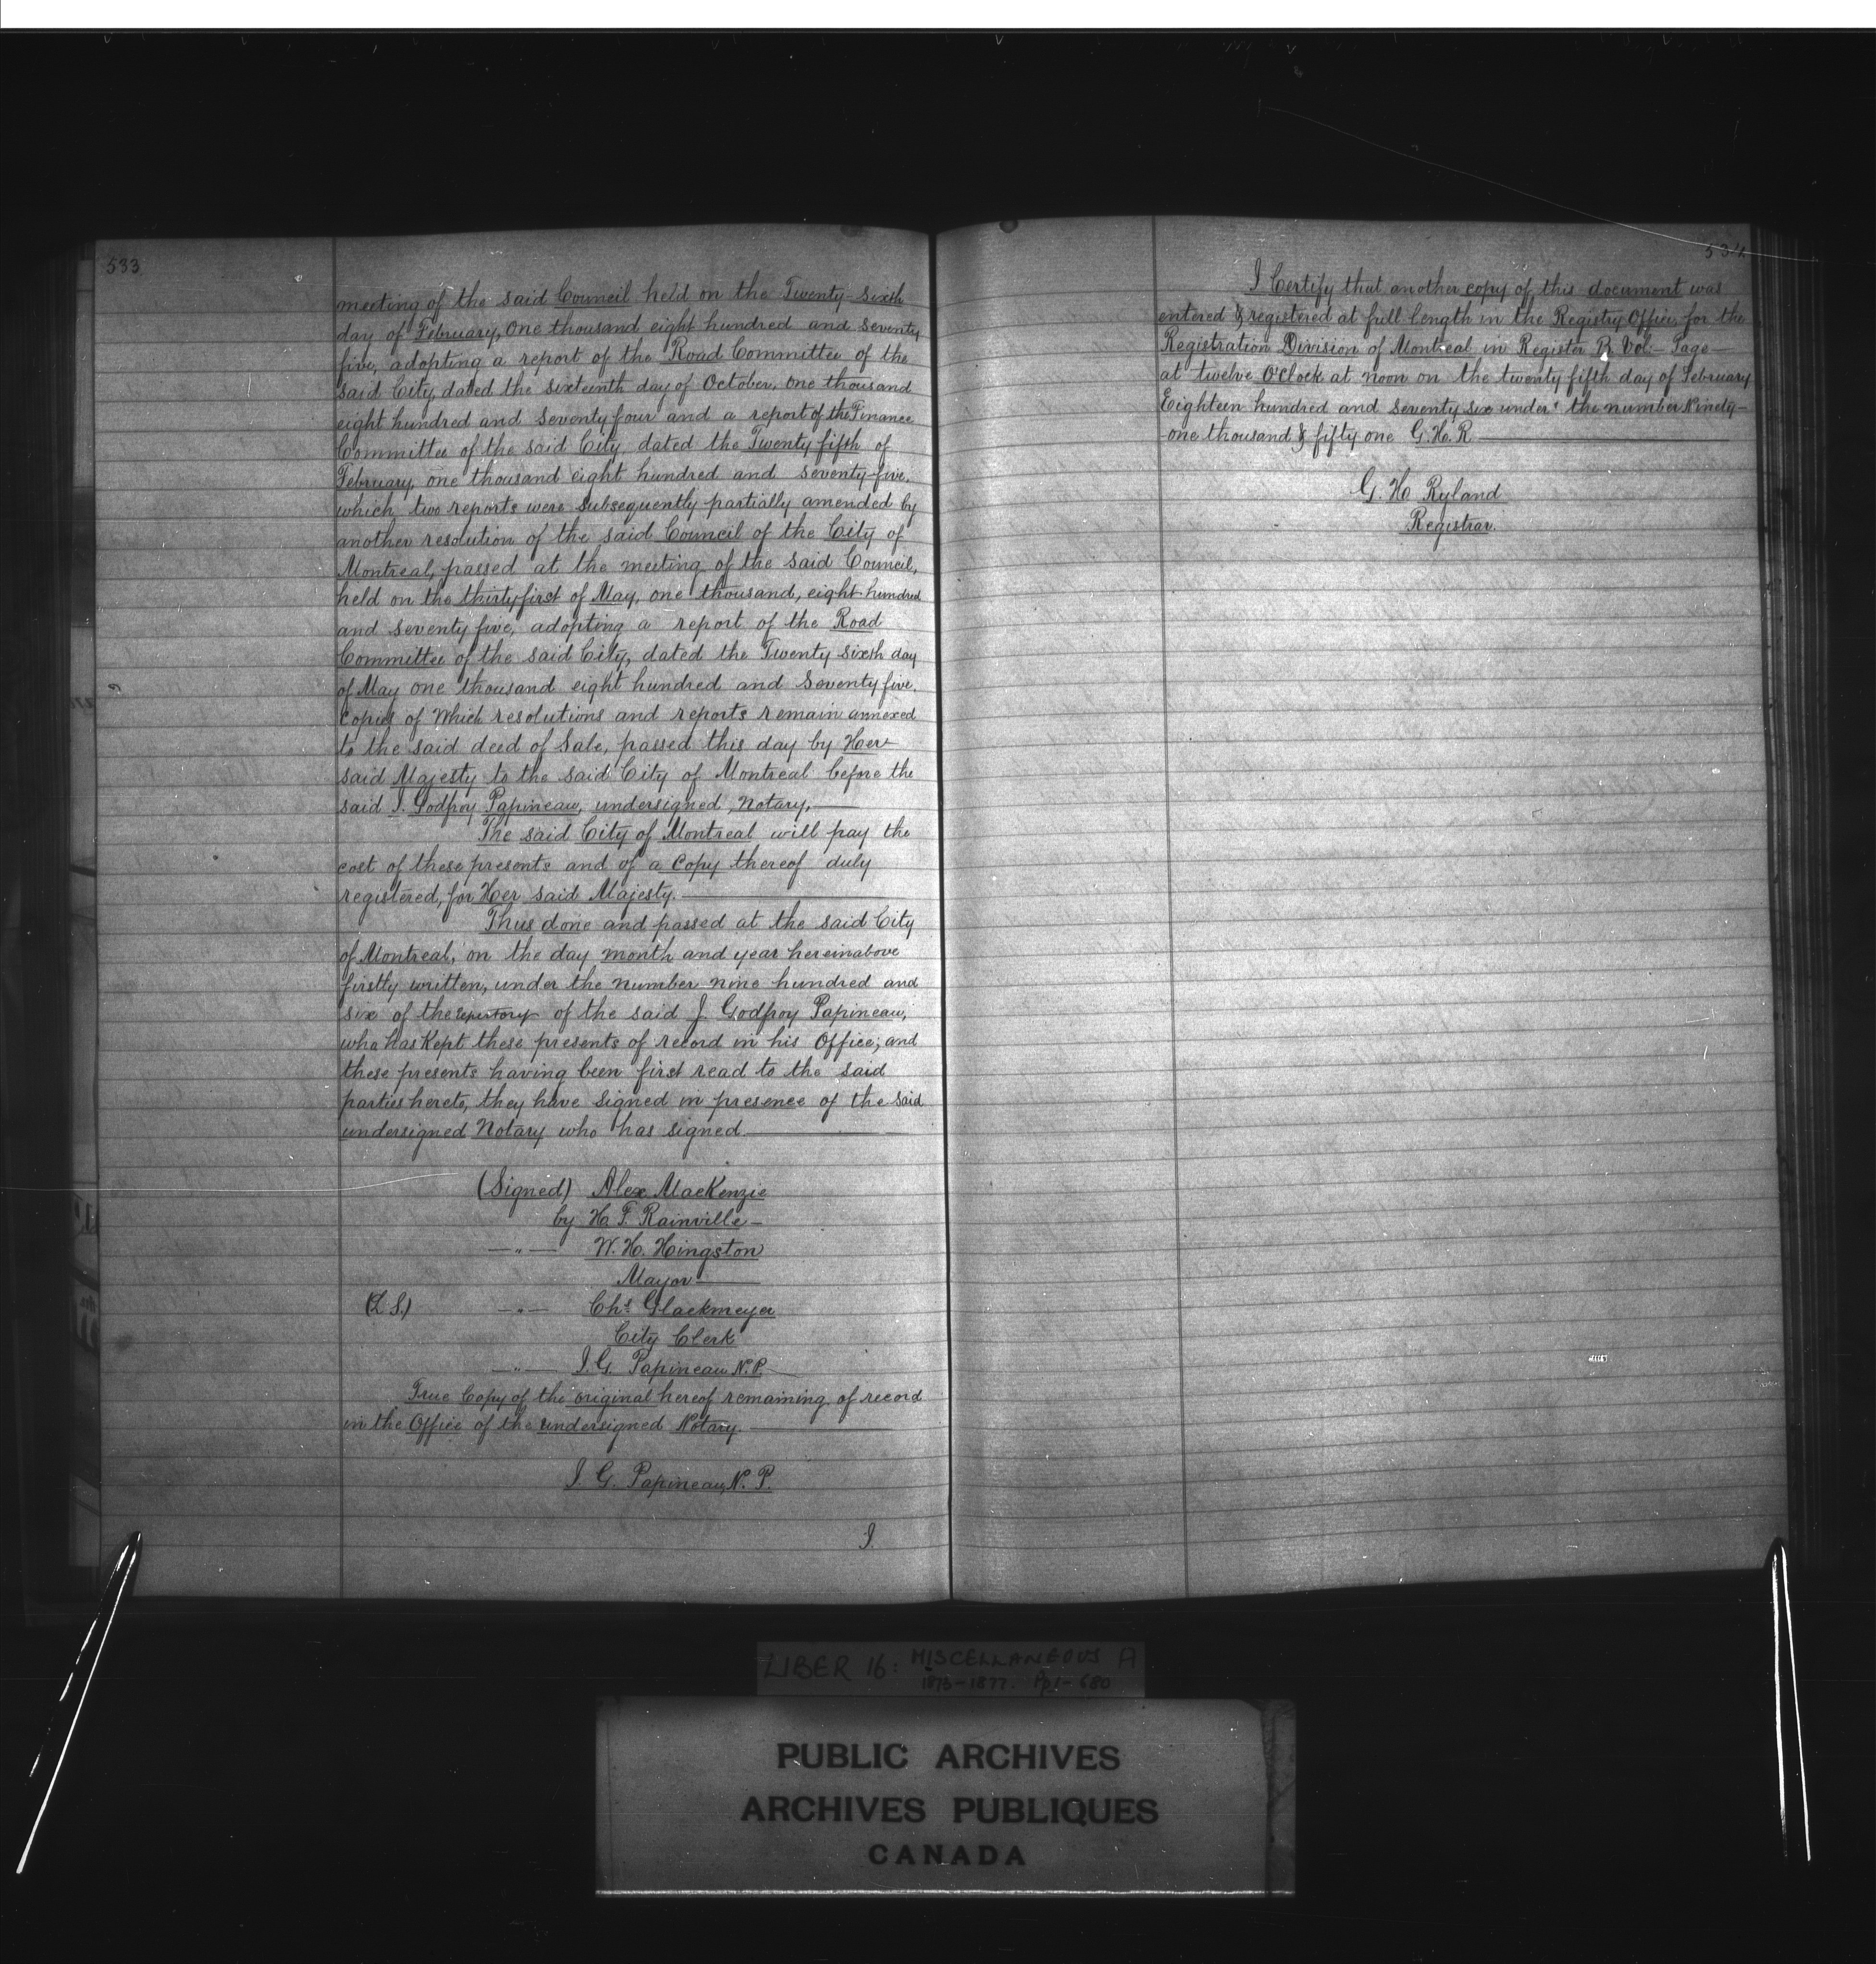 533
meeting of the said Council held on the Twenty-sixth
day of February, One thousand eight hundred and seventy
five, adopting a report of the Road Committee of the
said City, dated the sixteenth day of October, one thousand
eight hundred and seventy four and a report of the Finance
Committee of the said City, dated the Twenty fifth of
February, one thousand eight hundred and seventy-five.
which two reports were subsequently partially amended by
another resolution of the said Council of the City of
Montreal, passed at the meeting of the said Council,
held on the thirty first of May, one thousand, eight hundred
and seventy five, adopting a report of the Road
Committee of the said City, dated the Twenty sixth day
of May one thousand eight hundred and seventy five.
Copies of Which resolutions and reports remain annexed
to the said deed of Sale, passed this day by Her
said Majesty to the said City of Montreal before the
said J. Godfroy Papineau, undersigned, Notary,
The said City of Montreal will pay the
cost of these presents and of a Copy thereof duly
registered, for Her said Majesty.
Thus done and passed at the said City
of Montreal, on the day month and year hereinabove
firstly written, under the number nine hundred and
six of the repertory of the said J. Godfroy Papineau,
who has Kept these presents of record in his Office; and
these presents having been first read to the said
parties hereto, they have signed in presence of the said
undersigned Notary who has signed
(Signed) Alex MacKenzie
by H. F. Rainville
—"— W. H. Hingston
Mayor
(L S.) —"— Chs Glackmeyer
City Clerk
—"— J. G. Papineau N. P.
True Copy of the original hereof remaining of record
in the Office of the undersigned Notary.
J. G. Papineau, N. P.
I
534
I Certify that another copy of this document was
entered & registered at full length in the Registry Office, for the
Registration Division of Montreal in Register B Vol — Page —
at twelve O'Clock at noon on the twenty fifth day of February
Eighteen hundred and seventy six under the number Ninety-
-one thousand & fifty one G. H. R.
G. H. Ryland
Registrar.
LIBER 16: MISCELLANEOUS A
1873-1877. Pp 1-680
PUBLIC ARCHIVES
ARCHIVES PUBLIQUES
CANADA